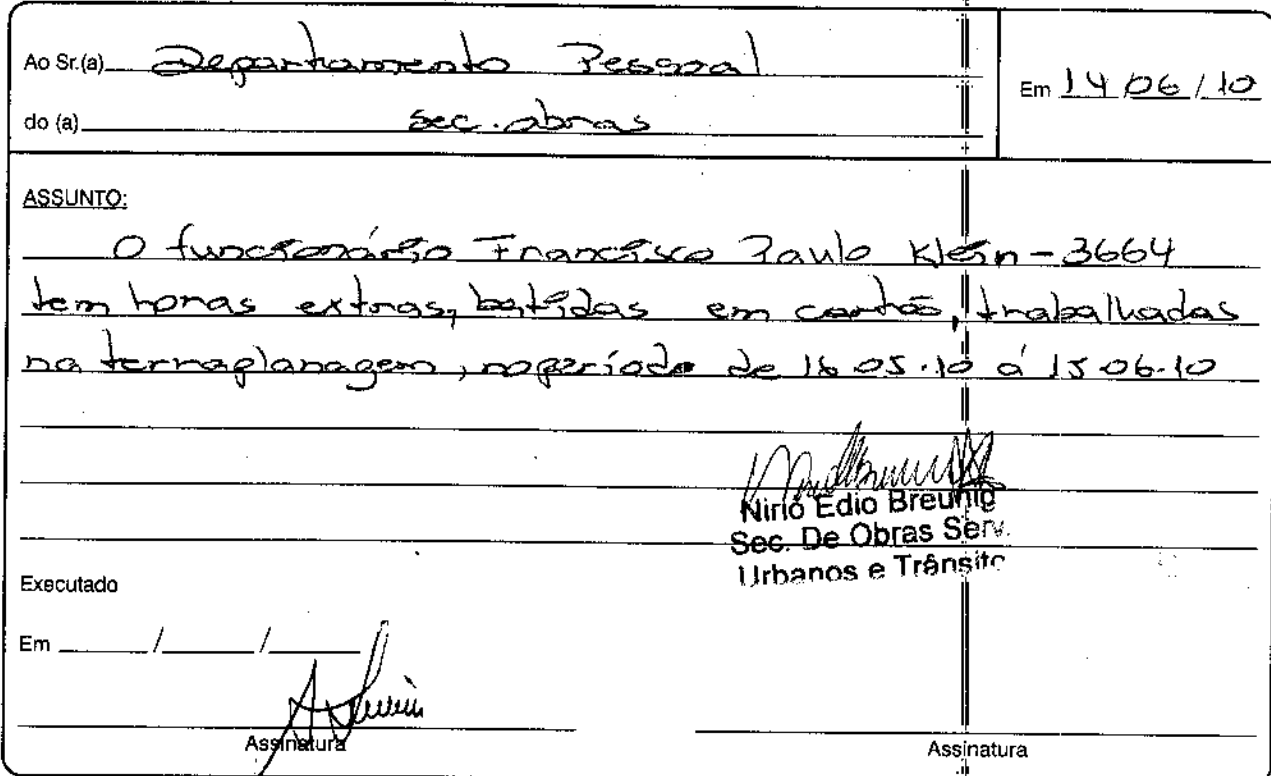 Ao Sr.(a) Departamento Pessoal
Em 14/06/10
do (a) sec. obras
ASSUNTO:
O funcionário Francisco Paulo Klein - 3664
tem horas extras, batidas em cartão, trabalhadas
na terraplanagem, no período de 16.05.10 á 15.06.10
Nirio Edio Breunig
Sec. De Obras Serv.
Urbanos e Trânsito
Executado
Em ____/____/____
Assinatura
Assinatura